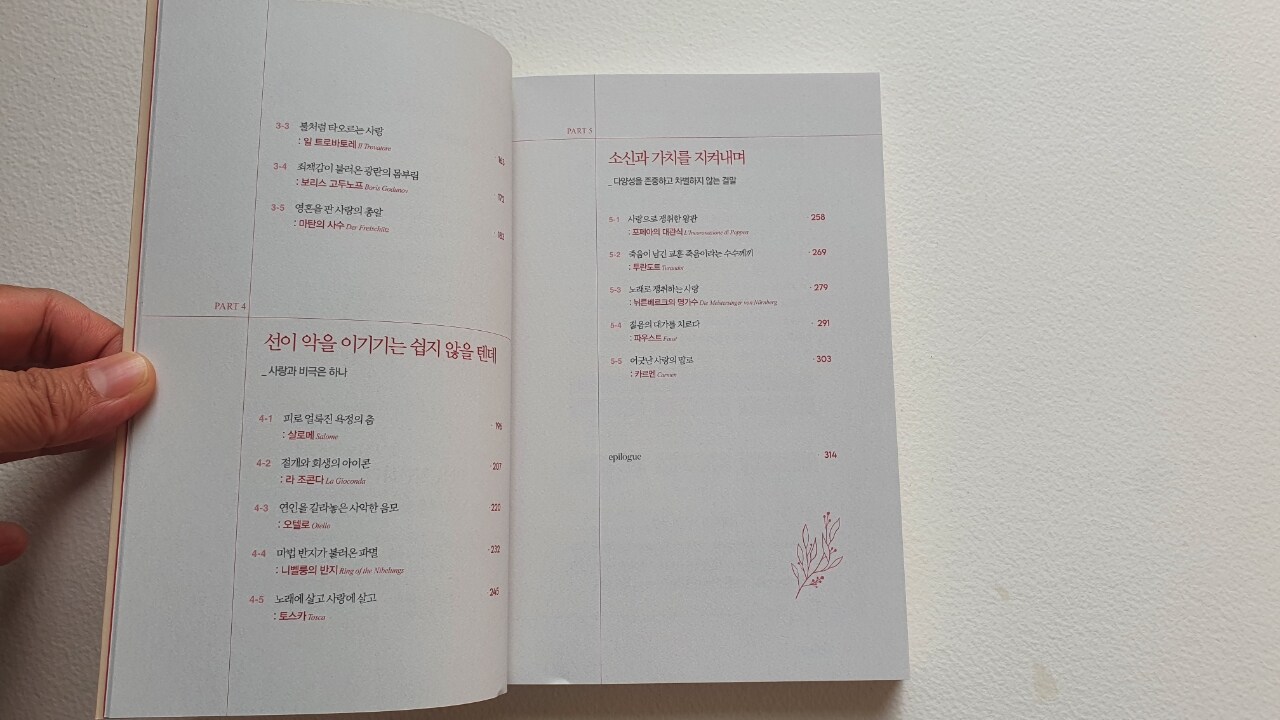 3-3 불처럼 타오르는 사랑
: 일 트로바토레 Il Trovatore
163
3-4 죄책감이 불러온 광란의 몸부림
: 보리스 고두노프 Boris Godunov
3-5 영혼을 판 사랑의 총알
: 마탄의 사수 Der Freischütz
PART 4
선이 악을 이기기는 쉽지 않을 텐데
_ 사랑과 비극은 하나
4-1 피로 얼룩진 욕정의 춤 · 196
: 살로메 Salome
4-2 절개와 희생의 아이콘 · 207
: 라 조콘다 La Gioconda
4-3 연인을 갈라놓은 사악한 음모 · 220
: 오텔로 Otello
4-4 마법 반지가 불러온 파멸 · 232
: 니벨룽의 반지 Ring of the Nibelungs
4-5 노래에 살고 사랑에 살고 · 245
: 토스카 Tosca
PART 5
소신과 가치를 지켜내며
_ 다양성을 존중하고 차별하지 않는 결말
5-1 사랑으로 쟁취한 왕관 · 258
: 포페아의 대관식 L'Incoronazione di Poppea
5-2 죽음이 남긴 교훈 죽음이라는 수수께끼 · 269
: 투란도트 Turandot
5-3 노래로 쟁취하는 사랑 · 279
: 뉘른베르크의 명가수 Die Meistersinger von Nürnberg
5-4 젊음의 대가를 치르다 · 291
: 파우스트 Faust
5-5 어긋난 사랑의 말로 · 303
: 카르멘 Carmen
epilogue · 314